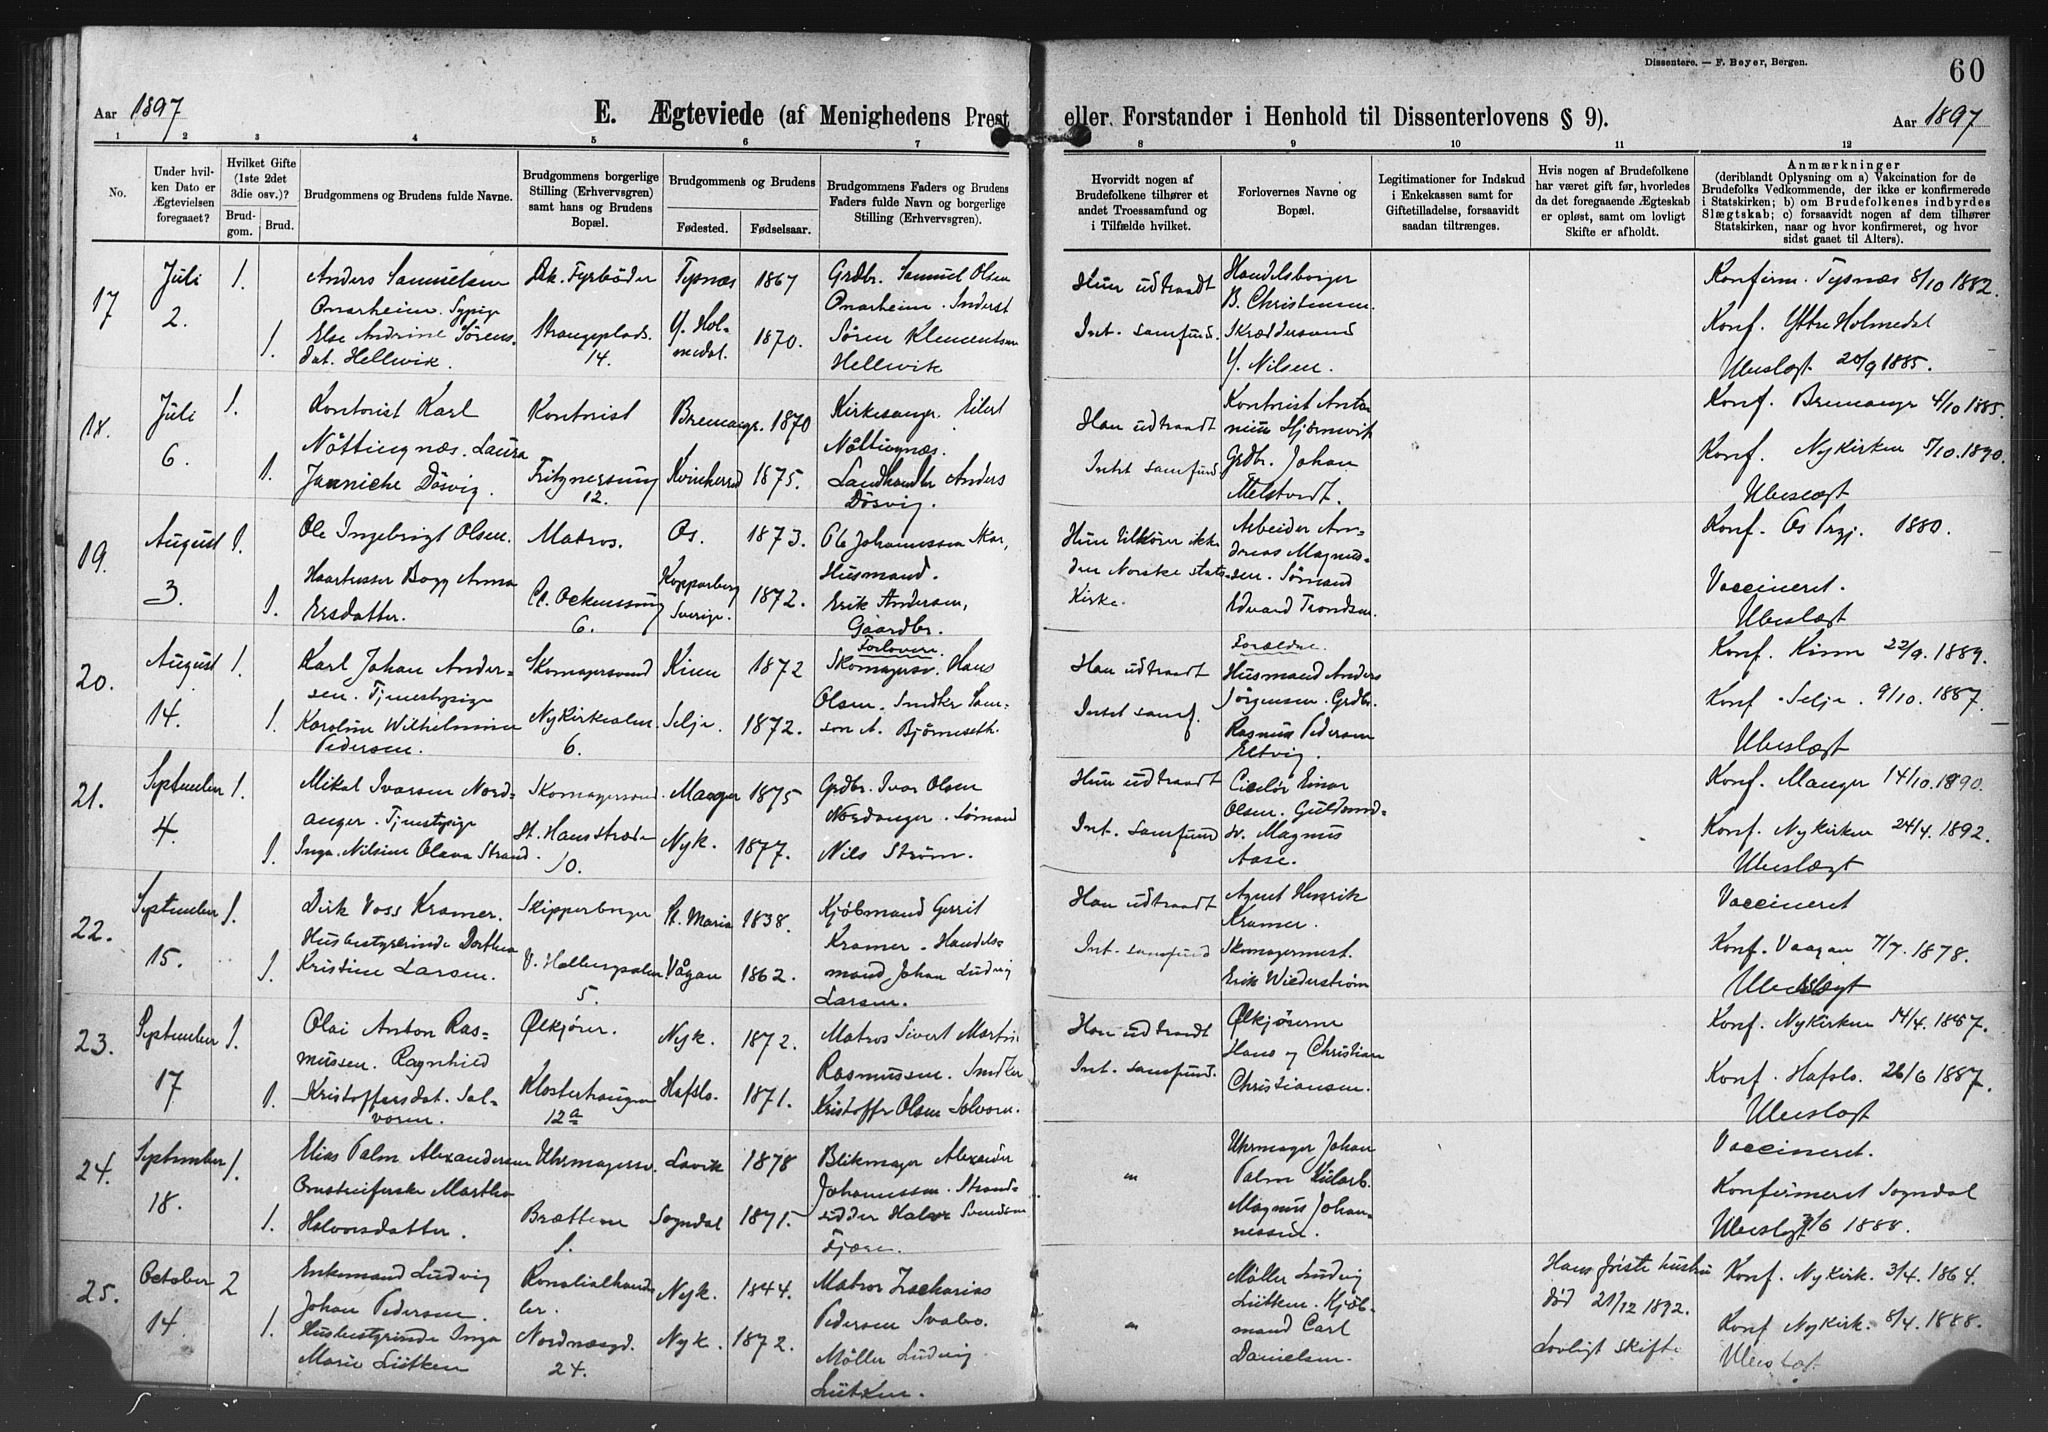 Dissentere. — F. Beyer, Bergen.
60
Aar 1897
E. Ægteviede (af Menighedens Prest eller Forstander i Henhold til Dissenterlovens § 9).
Aar 1897
1 2 3 4 5 6 7 8 9 10 11 12
No.
Under hvil-
ken Dato er
Ægtevielsen
foregaaet?
Hvilket Gifte
(1ste 2det
3die osv.)?
Brud-
gom.
Brud.
Brudgommens og Brudens fulde Navne.
Brudgommens borgerlige
Stilling (Erhvervsgren)
samt hans og Brudens
Bopæl.
Brudgommens og Brudens
Fødested.
Fødselsaar.
Brudgommens Faders og Brudens
Faders fulde Navn og borgerlige
Stilling (Erhvervsgren).
Hvorvidt nogen af
Brudefolkene tilhører et
andet Troessamfund og
i Tilfælde hvilket.
Forlovernes Navne og
Bopæl.
Legitimationer for Indskud
i Enkekassen samt for
Giftetilladelse, forsaavidt
saadan tiltrænges.
Hvis nogen af Brudefolkene
har været gift før, hvorledes
da det foregaaende Ægteskab
er opløst, samt om lovligt
Skifte er afholdt.
Anmærkninger
(deriblandt Oplysning om a) Vakcination for de
Brudefolks Vedkommende, der ikke er konfirmerede
i Statskirken; b) om Brudefolkenes indbyrdes
Slægtskab; c) forsaavidt nogen af dem tilhører
Statskirken, naar og hvor konfirmeret, og hvor
sidst gaaet til Alters).
17
Juli
2.
1.
1.
Anders Samuelsen
Onarheim. Sypige
Else Andrine Sørens-
dat. Hellevik.
Dk. Fyrbøder
Strangeplads.
14.
Tysnæs 1867
Y. Hol-
medal. 1870.
Grdbr. Samuel Olsen
Onarheim. Inderst
Søren Klementsen
Hellevik
Hun udtraadt
Int. samfund.
Handelsborger
B. Christensen.
Skræddersvend
Y. Nilsen.
Konfirm. Tysnæs 8/10 1882.
Konf. Yttre Holmedal
Ubeslægt 20/9 1885.
18.
Juli
6.
1.
1.
Kontorist Karl
Nöttingnæs. Laura
Jannicke Dösvig.
Kontorist
Fritznersmug
12.
Bremanger. 1870
Kvinherred 1875.
Kirkesanger. Eilert
Nöttingnæs.
Landhandler Anders
Dösvig.
Han udtraadt
Intet samfund
Kontorist Anto
nius Hjörnevik
Grdbr. Johan
Konf. Bremanger 4/10 1885.
Konf. Nykirken 5/10. 1890.
Ubeslægt
19.
August
3.
1.
1.
Ole Ingebrigt Olsen.
Bogg Anna
Ersdatter.
Matros.
6.
Os. 1873.
Kopparberg
Sverige. 1872.
Ole Johannessen
Husmand.
Erik Andersen,
Gaardbr.
Hun tilhører ikke
den Norske stats-
Kirke.
Arbeider An-
dreas Magnus-
sen. Sømand
Edvard Trondsen.
Konf. Os Prgj. 1880.
Vaccineret.
Ubeslægt
20.
August
14.
1.
1.
Karl Johan Ander-
sen. Tjenestepige
Karoline Wilhelmine
Pedersen.
Skomagersvend
Nykirkealm.
6.
Kinn 1872
Selje. 1872.
Forlovere.
Skomagersv. Hans
Olsen. Snedker Sam-
son A. Bjørneseth.
Han udtraadt
Intet samf.
Forældre.
Husmand Anders
Jörgensen. Grdbr.
Rasmus Pedersen
Eltvig.
Konf. Kinn 22/9. 1889.
Konf. Selje. 9/10. 1887.
Ubeslægt
21.
September
4.
1.
1.
Mikal Ivarsen Nord-
anger. Tjenestepige
Inga Nilsine Olava Strand.
Skomagersvend.
St. Hans stræde
10.
Manger 1875
Nyk. 1877.
Grdbr. Ivar Olsen
Nordanger. Sømand
Nils Strøm.
Hun udtraadt
Int. samfund
Ciselør Einar
Olsen. Guldsmed-
sv. Magnus
Aase.
Konf. Manger 14/10. 1890.
Konf. Nykirken 24/4. 1892.
Ubeslægt
22.
September
15.
1.
1.
Dirk Voss Kramer.
Husbestyrerinde Dorthea
Kristine Larsen.
Skipperborger
V. Holbergsalm
5.
St. Maria 1838.
Vågan 1862.
Kjöbmand Gerrit
Kramer. Handels-
mand Johan Ludvig
Larsen.
Han udtraadt
Int. samfund
Agent Henrik
Kramer.
Skomagermest.
Erik Wiederstrøm
Vaccineret
Konf. Vaagan 7/7. 1878.
Ubeslægt
23.
September
17
1.
1.
Olai Anton Ras-
mussen. Ragnhild
Kristoffersdat. Sol-
vorn.
Ølkjører.
Klosterhaugen
12a
Nyk. 1872.
Hafslo. 1871.
Matros Sivert Martin
Rasmussen. Snedker
Kristoffer Olsen Solvorn.
Han udtraadt
Int. samfund.
Ølkjørerne
Hans og Christian
Christiansen.
Konf. Nykirken 14/4. 1887.
Konf. Hafslo. 26/6 1887.
Ubeslægt
24.
September
18.
1.
1.
Elias Palm Alexandersen
Martha
Halvorsdatter.
Uhrmagersv.
Brætten
1.
Lavik 1878
Sogndal 1871.
Blikmager Alexander
Johannessen. Strand-
sidder Halvor Svendsen
Fjære.
"
Uhrmager Johan
Palm
Magnus Johan-
nessen.
Vaccineret.
Konfirmeret Sogndal
Ubeslægt 3/6 1888.
25.
October
14.
2
1.
Enkemand Ludvig
Johan Pedersen.
Husbestyrinde Inga
Marie Lütken
Konsialhand-
ler.
Nordnæsgd.
24.
Nyk. 1844.
Nyk. 1872.
Matros Zacharias
Pedersen Svabo.
Møller Ludvig
Lütken.
"
Møller Ludvig
Lütken. Kjøb-
mand Carl
Danielsen.
Hans første hustru
död 21/12 1892.
Lovligt skifte
Konf. Nykirk. 3/4. 1864.
Konf Nykirk. 8/4. 1888.
Ubeslægt